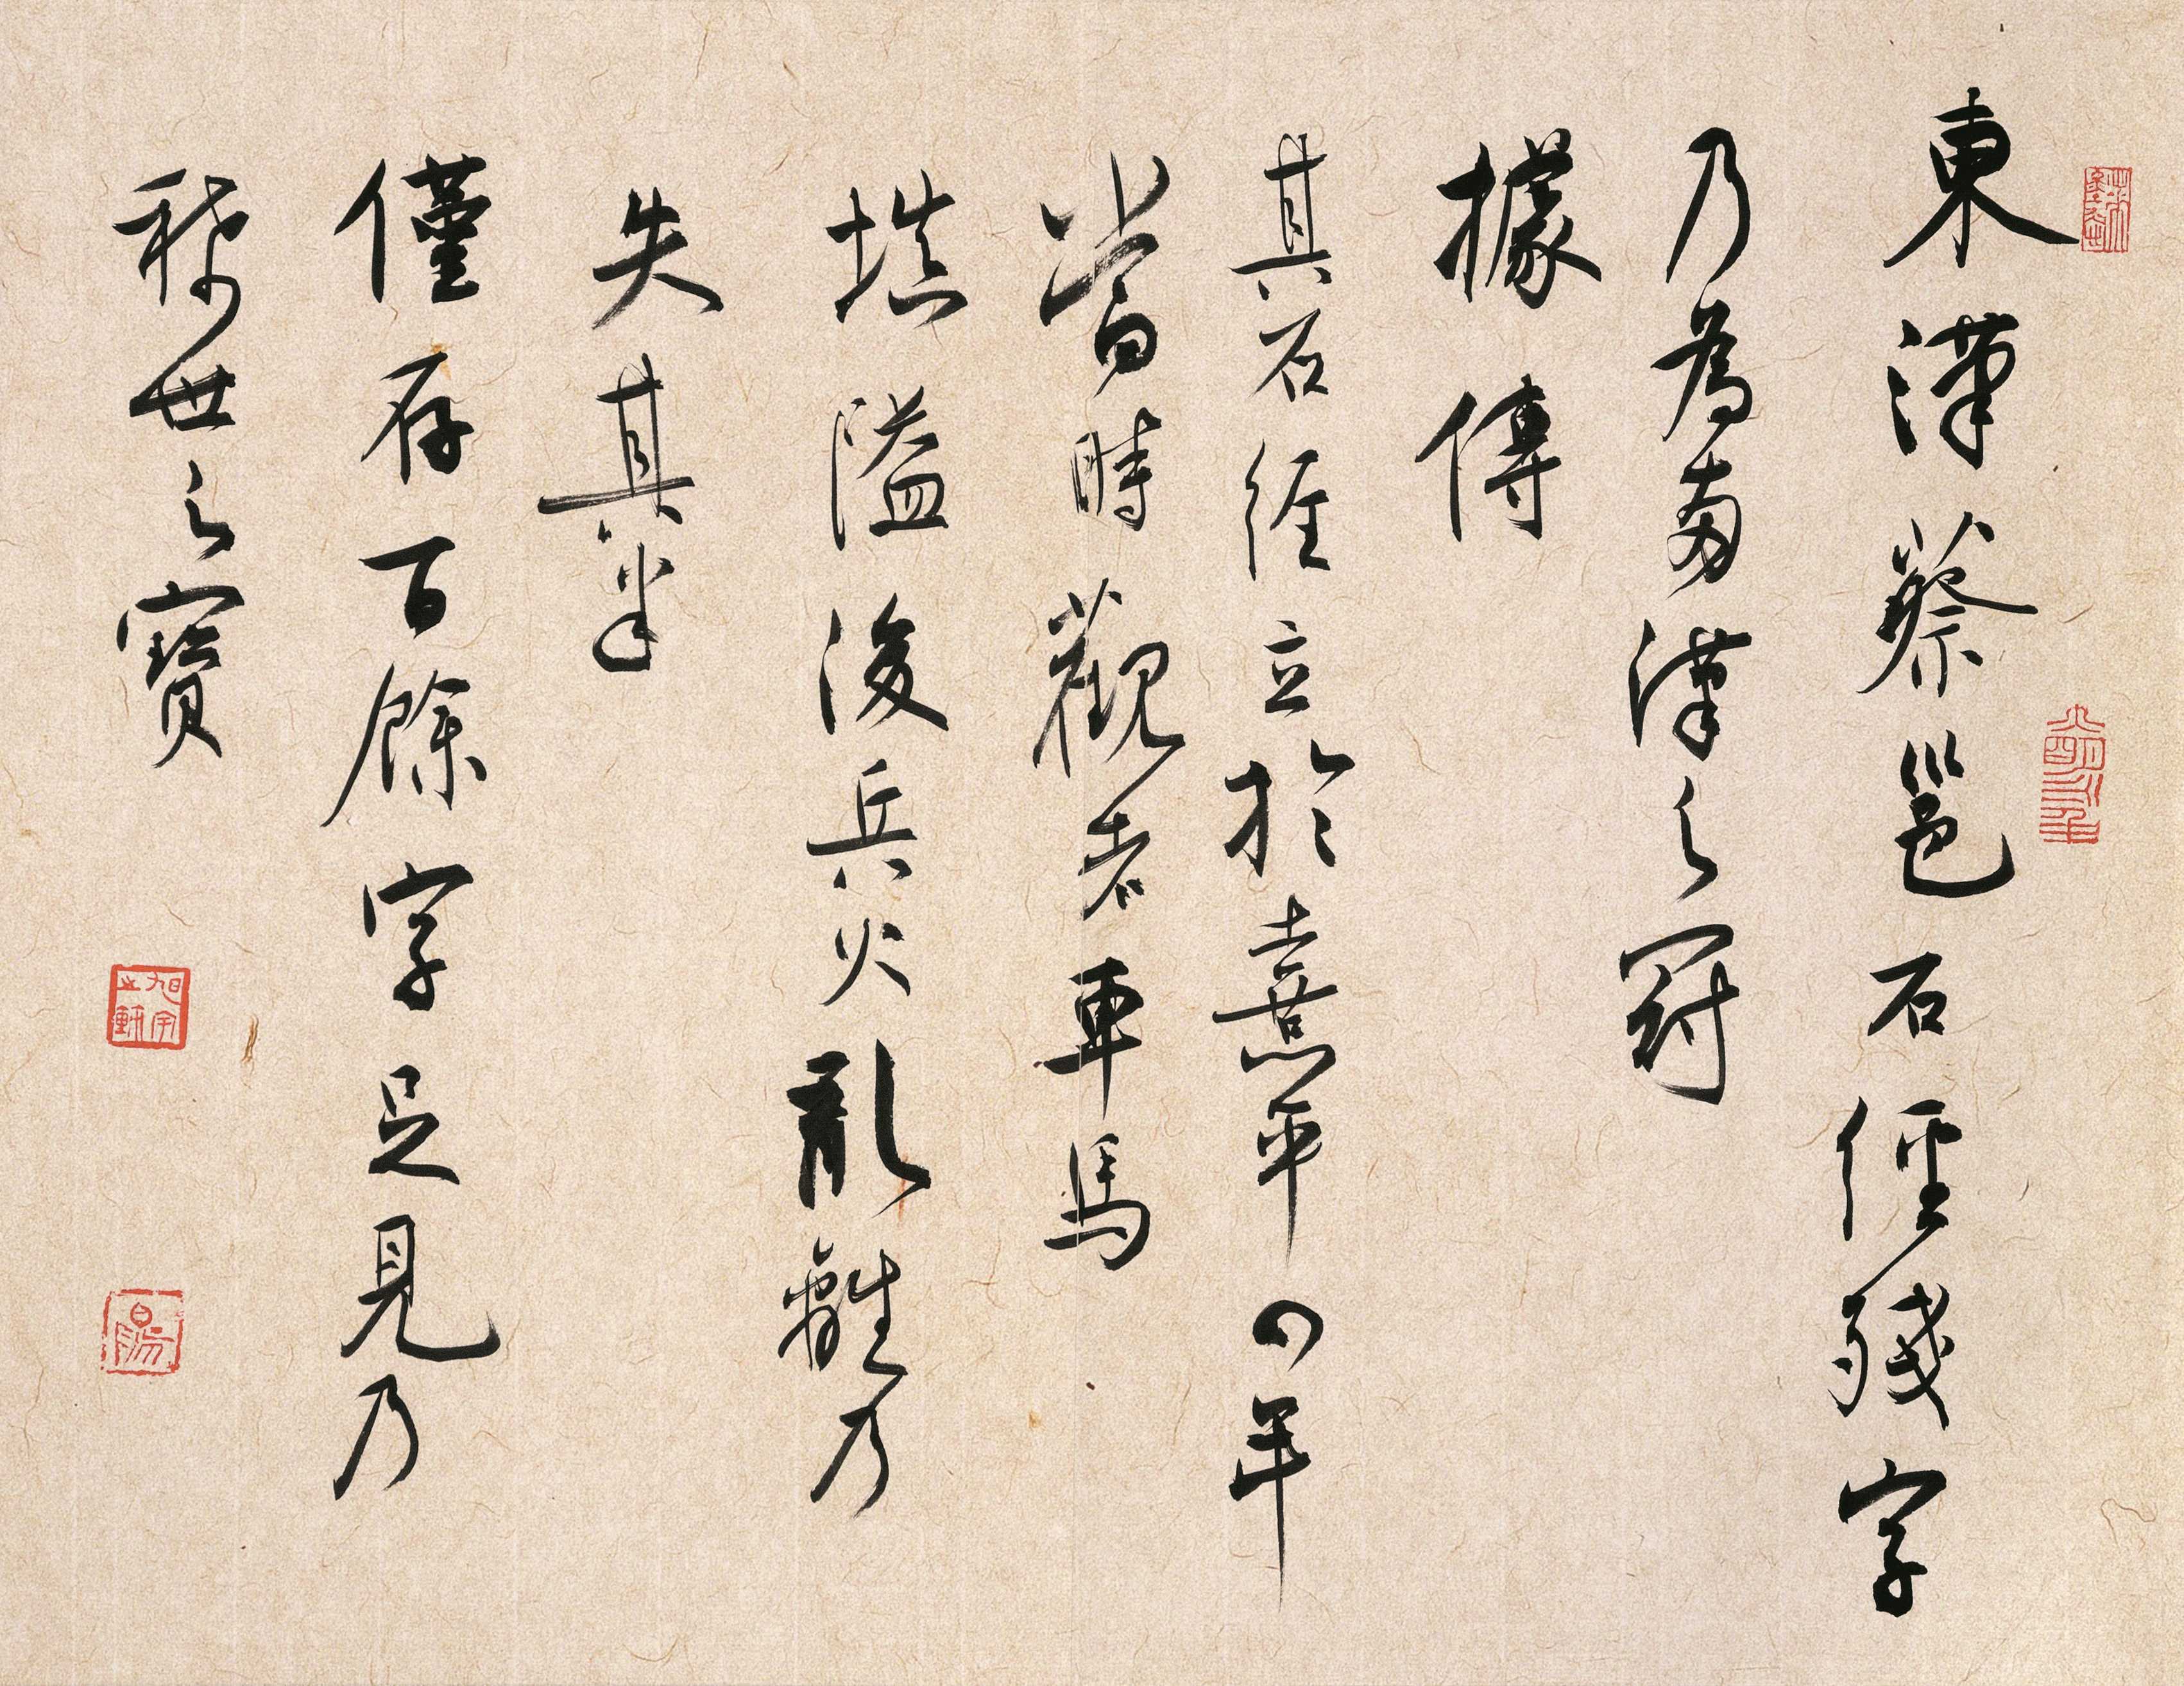 東漢蔡邕石經殘字
乃為兩漢之冠
據傳
其石經立於熹平四年
當時觀者車馬
填隘後兵火亂離乃
失其半
僅存百餘字足見乃
稀世之寶